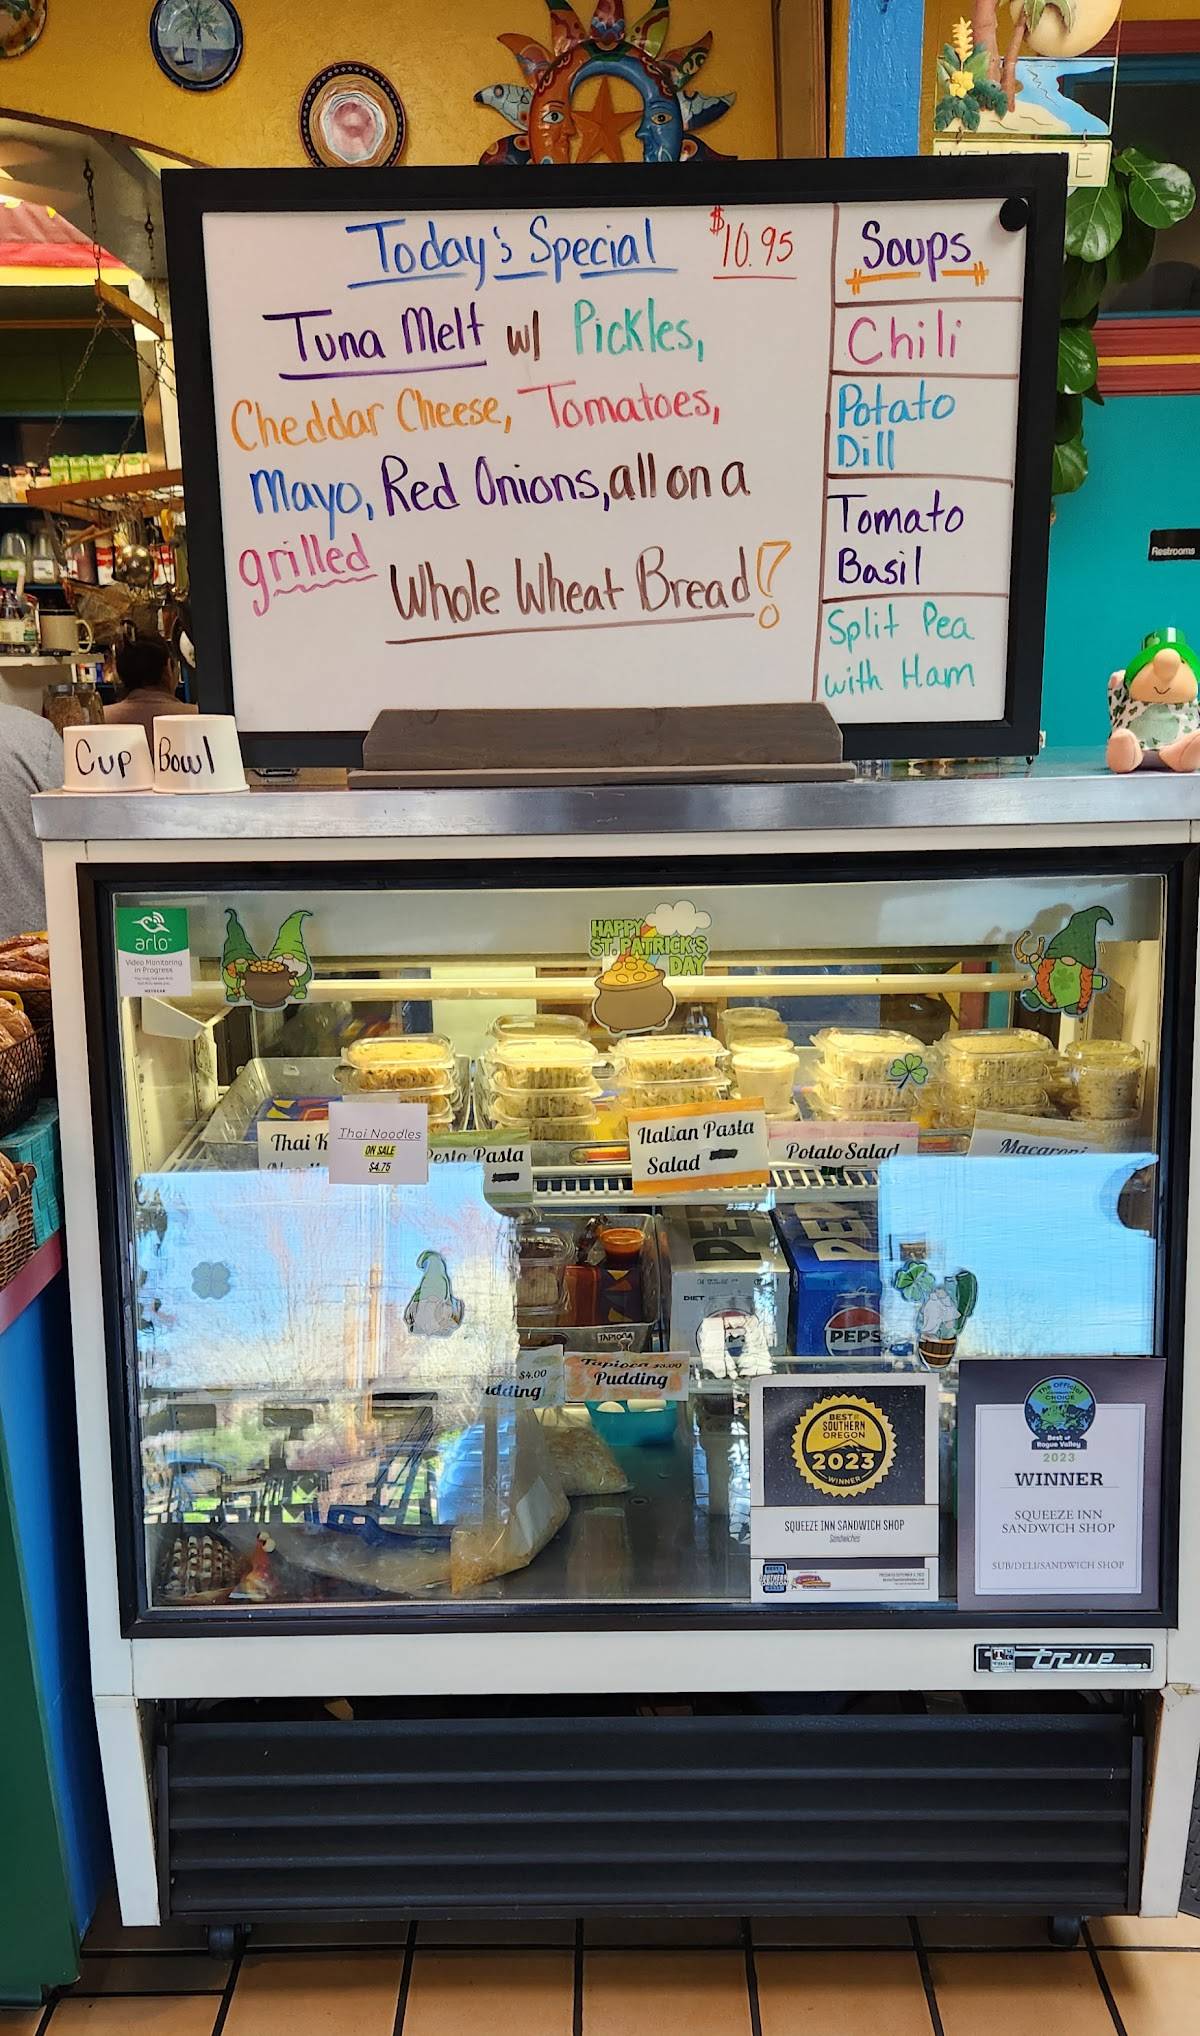 WELCOME
Today's Special $10.95
Tuna Melt w/ Pickles,
Cheddar Cheese, Tomatoes,
Mayo, Red Onions, all on a
grilled Whole Wheat Bread!
Soups
Chili
Potato
Dill
Tomato
Basil
Split Pea
with Ham
Restrooms
Cup Bowl
arlo
Video Monitoring
in Progress
NETGEAR
HAPPY
ST. PATRICK'S
DAY
Thai K
Thai Noodles
ON SALE
$4.75
Pesto Pasta
Italian Pasta
Salad
Potato Salad
Macaroni
PEP
PEP
DIET
PEPS
TAPIOCA
$4.00
udding
Tapioca $3.00
Pudding
BEST OF
SOUTHERN
OREGON
2023
WINNER
SQUEEZE INN SANDWICH SHOP
Sandwiches
The Official
CHOICE
Best of
Rogue Valley
2023
WINNER
SQUEEZE INN
SANDWICH SHOP
SUB/DELI/SANDWICH SHOP
true